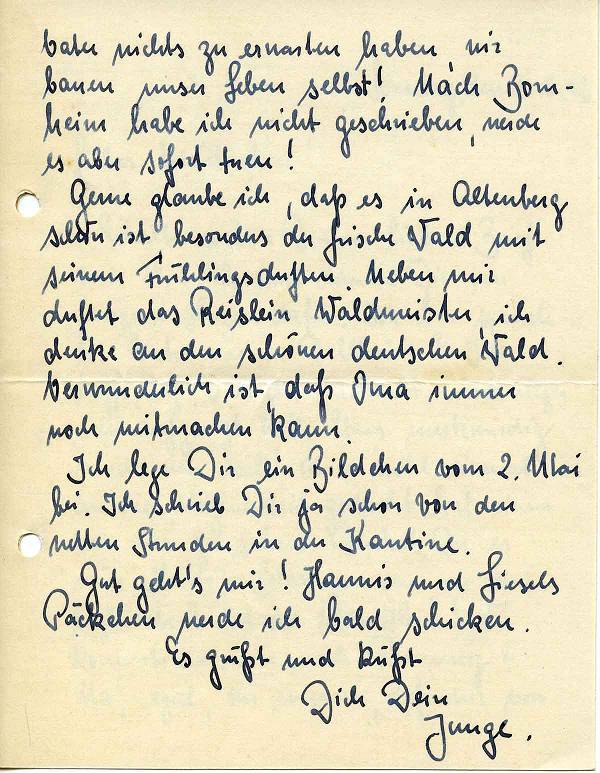 Vater nichts zu erwarten haben, wir
bauen unser Leben selbst! Nach Born-
heim habe ich nicht geschrieben, werde
es aber sofort tuen!
Gerne glaube ich, daß es in Altenberg
schön ist besonders der frische Wald mit
seinem Frühlingsduften. Neben mir
duftet das Reislein Waldmeister, ich
denke an den schönen deutschen Wald.
Verwunderlich ist, daß Oma immer
noch mitmachen kann.
Ich lege Dir ein Bildchen vom 2. Mai
bei. Ich schrieb Dir ja schon von den
netten Stunden in der Kantine.
Gut geht's mir! Hannis und Liesels
Päckchen werde ich bald schicken.
Es grüßt und küßt
Dich Dein
Junge.